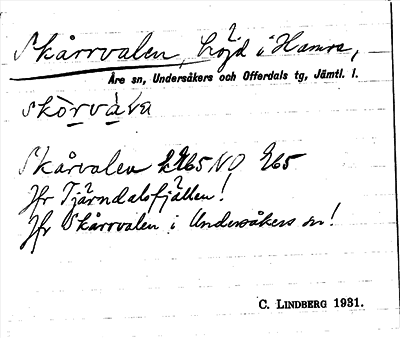 Skårrvalen, höjd i Hamra,
Åre sn, Undersåkers och Offerdals tg, Jämtl. l.
skòrvàva
Skårvalen k765 NO 765
Jfr Tjärndalsfjällen!
Jfr Skårrvalen i Undersåkers sn!
C. LINDBERG 1931.